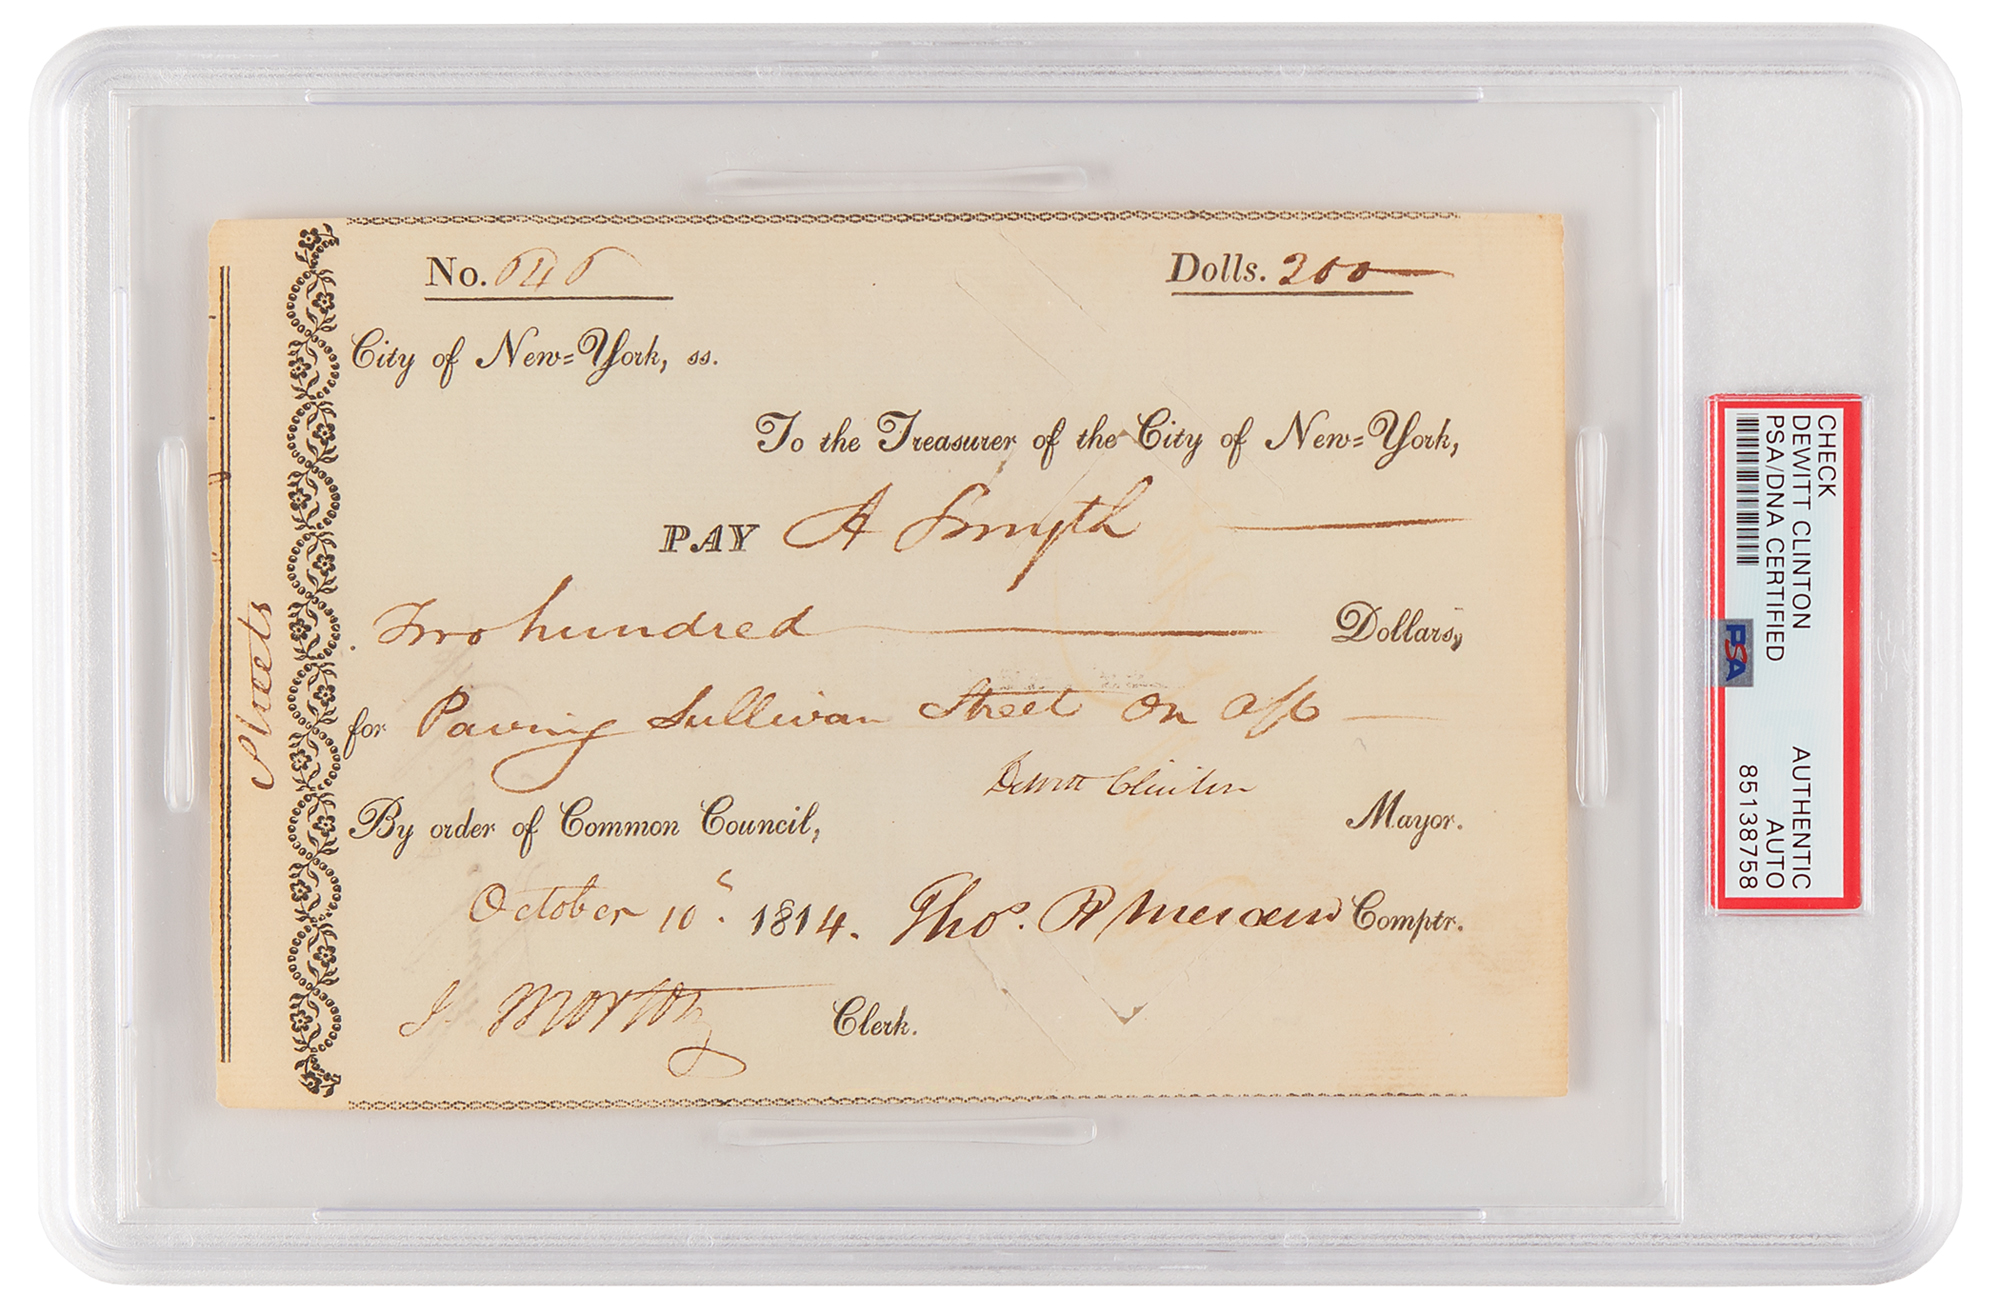 No. 646
Dolls. 200
City of New=York, ss.
To the Treasurer of the City of New=York,
PAY A Smyth
Two hundred Dollars,
for Paving Sullivan Street on a/c
DeWitt Clinton
By order of Common Council, Mayor.
October 10. 1814. Thos. R Mercein Comptr.
J. Morton Clerk.
Streets
CHECK
DEWITT CLINTON AUTHENTIC
PSA/DNA CERTIFIED AUTO
85138758
PSA